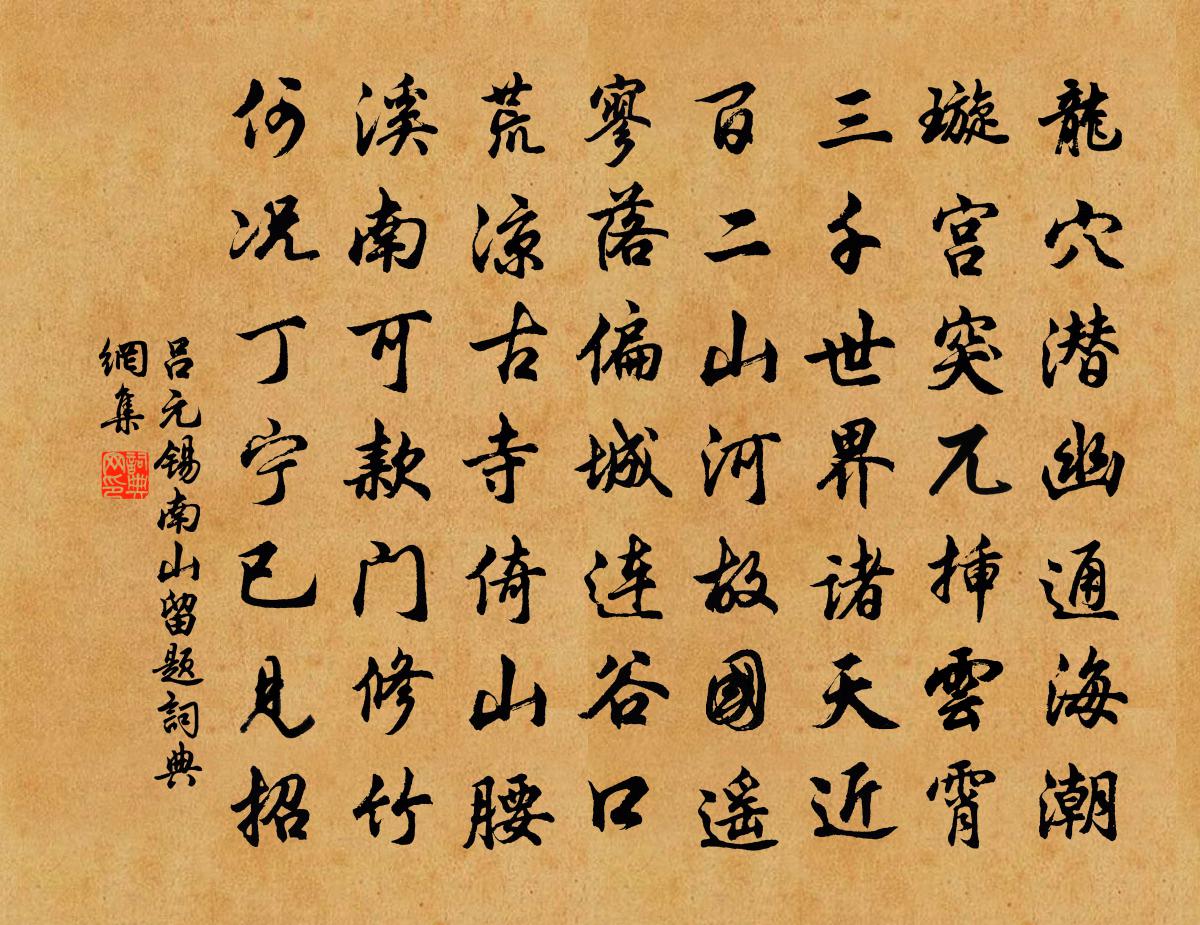 龍穴潜幽通海潮
璇宫突兀插雲霄
三千世界諸天近
百二山河故國遥
寥落偏城連谷口
荒凉古寺倚山腰
溪南可款门修竹
何况丁宁已見招
呂元锡南山留题詞典
網集
詞典网印